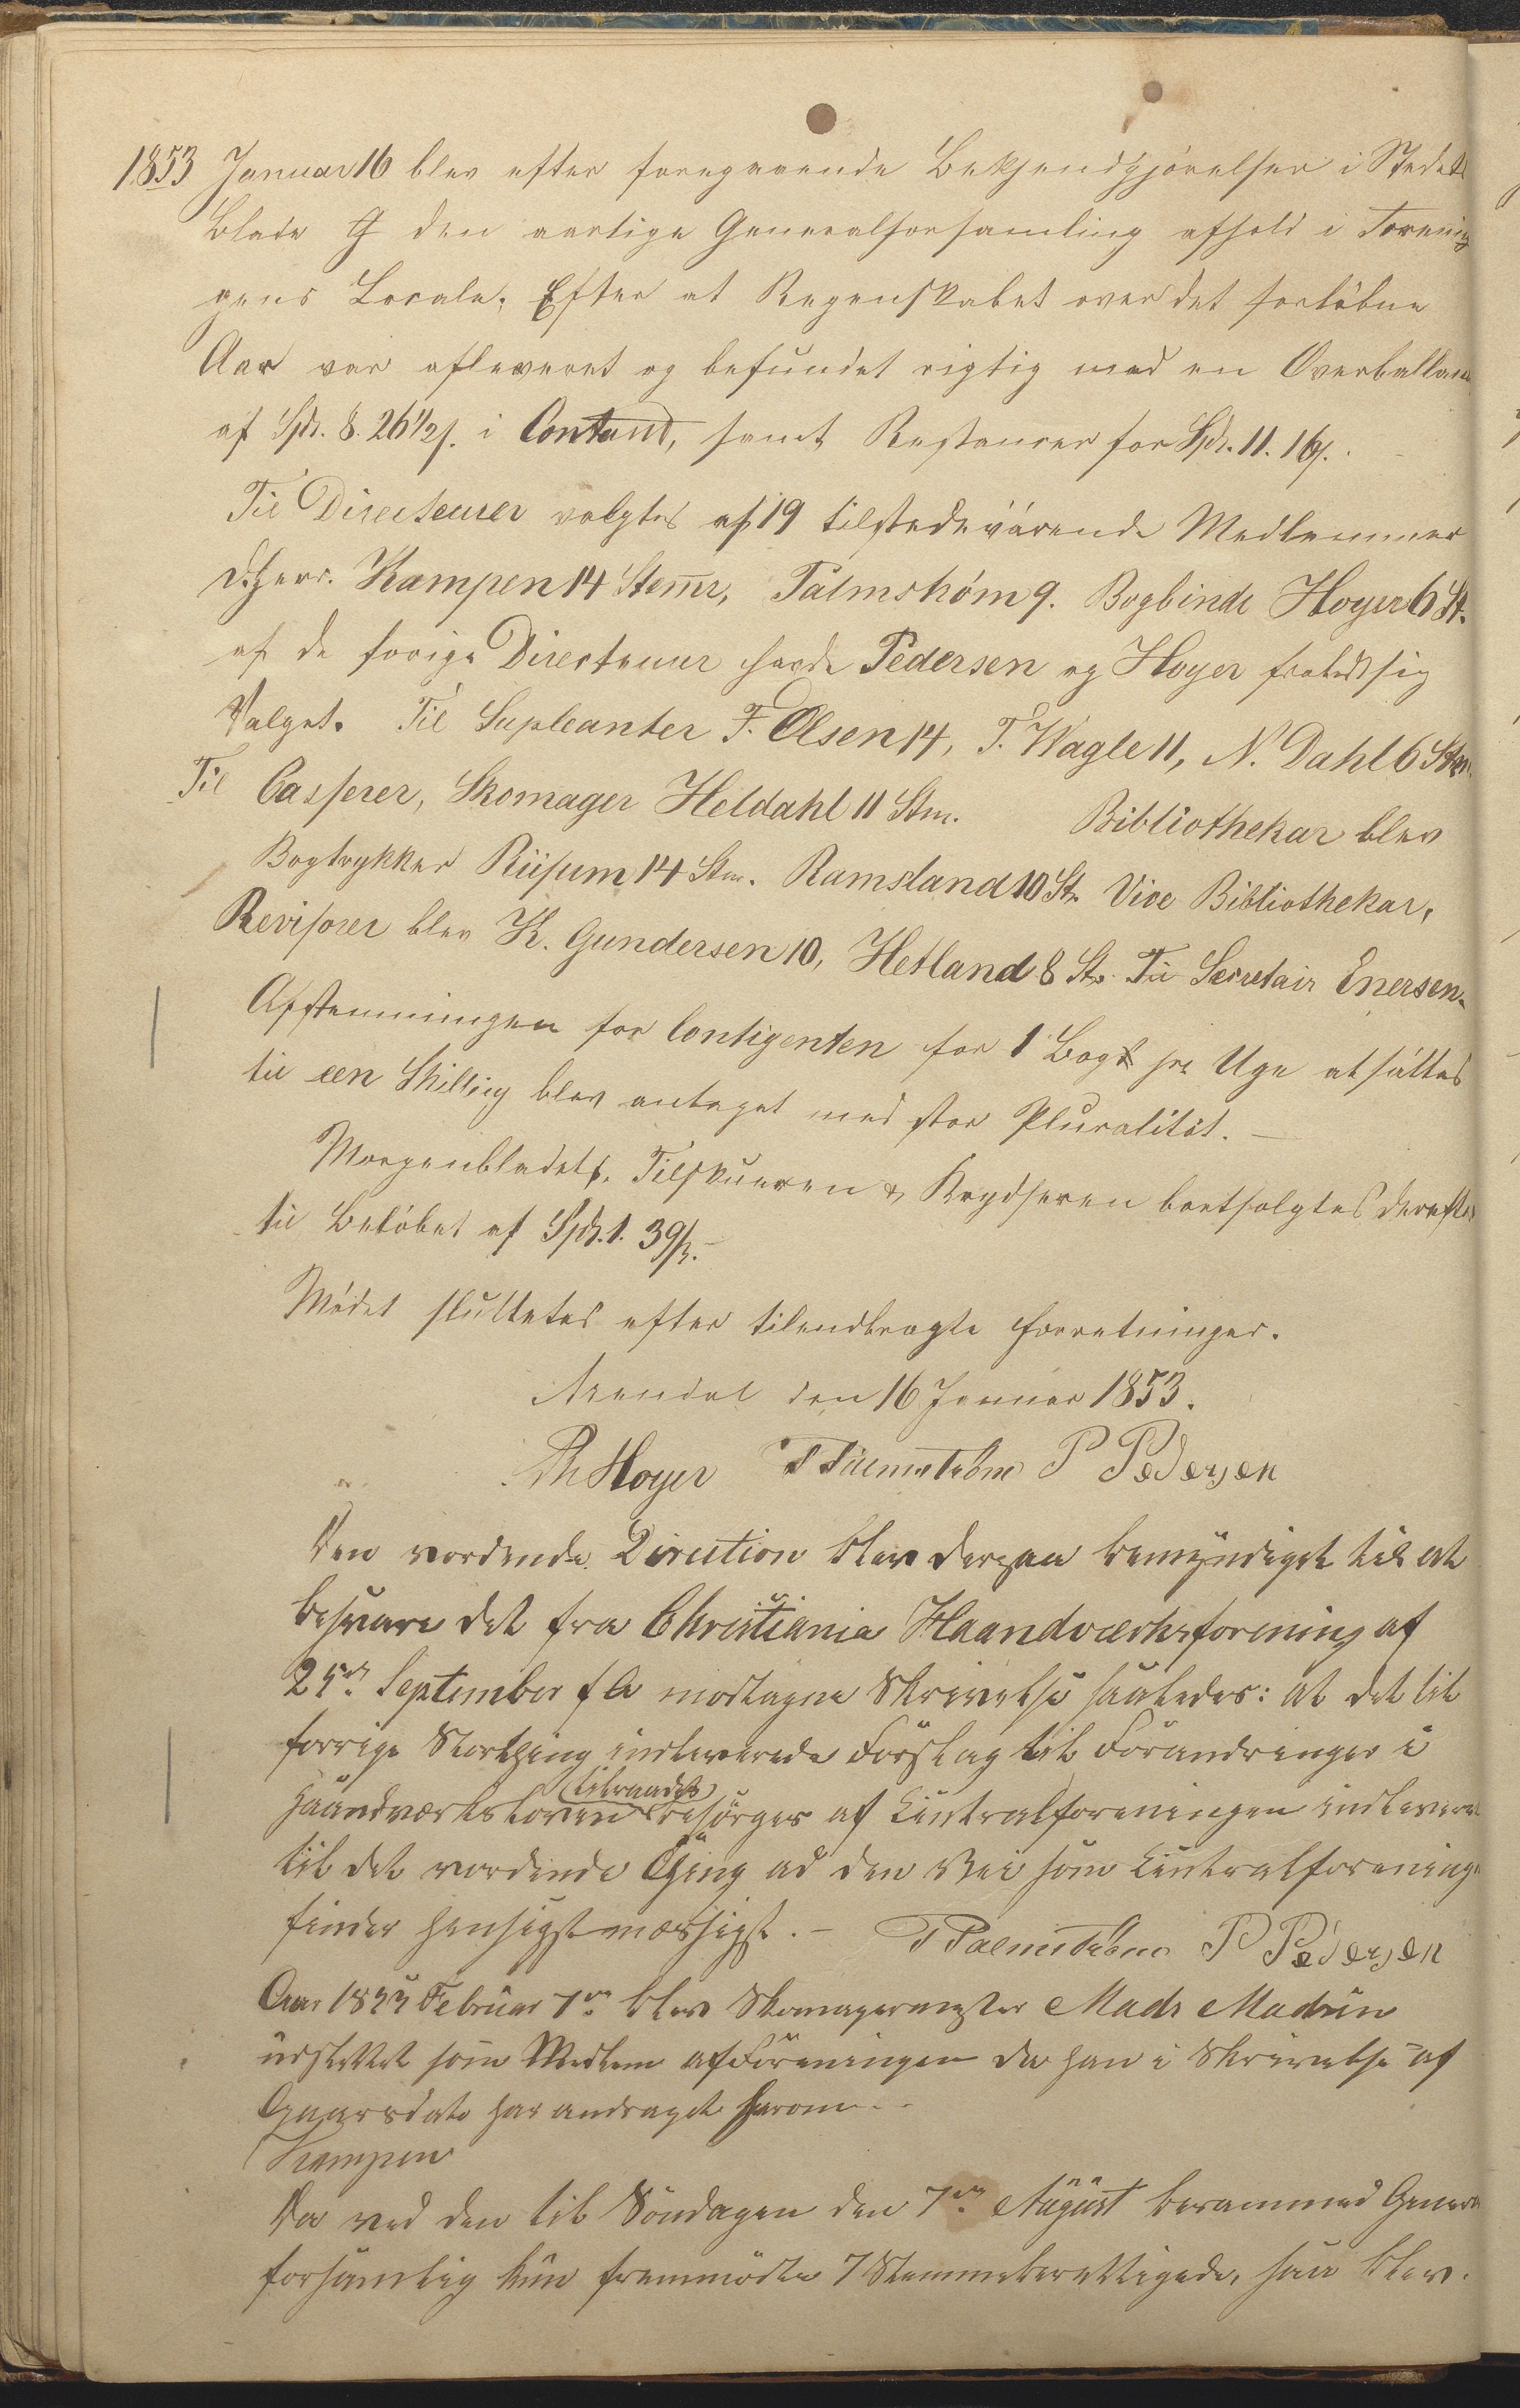 1853 Januar 16 blev efter foregaaende Bekjendgjørelser i Stedets
Blade den aarlige Generalforsamling afhold i Forenin
gens Locale. Efter at Regenskabet over det forløbne
Aar var afleveret og befundet rigtig med en Overballan
af Spd. 8. 26 1/2 s. i Contant, samt Restancer for Spd. 11. 16 s.
Til Directeurer valgtes af 19 tilstedeværende Medlemmer
d'Herr. Kampen 14 Stemr, Palmstrøm 9. Bogbinder Hoyer 6 St.
af de forige Directeurer havde Pedersen og Hoyer frabedt sig
Valget. Til Supleanter F. Olsen 14, T. Wagle 11, N. Dahl 6 Stm.
Til Casserer, Skomager Heldahl 11 Stm. Bibliothekar blev
Bogtrykker Riisum 14 Stm. Ramsland 10 St. Vice Bibliothekar,
Revisorer blev K. Gundersen 10, Hetland 8 St. Til Secretair Enersen.
Afstemningen for Contigenten for 1 Bog pr Uge at sættes
til een Skilling blev antaget med stor Pluralitet. —
Morgenbladet, Tilskueren & Krydseren bortsolgtes derefter
til Beløbet af Spd. 1. 39 s. —
Mødet sluttetes efter tilendbragte Forretninger.
Arendal den 16 Januar 1853.
Hoyer T Palmstrøm P Pedersen
Den vordende Direction blev derpaa bemyndiget til at
besvare det fra Christiania Haandværksforening af
25de September f A modtagne Skrivelse saaledes: at det til
forrige Storthing indleverede Forslag til Forandringer i
(tilraades)
Haandværksloven besørges af Centralforeningen indlevere
til det vordende Thing ad den Vei som Centralforening
finder hensigtmæssigst. — T Palmstrøm P Pedersen
Aar 1853 Februar 7de blev Skomagermester Mads Madsen
udslettet som Medlem af Foreningen da han i Skrivelse af
Gaarsdato har andraget herom. —
Kampen
Da ved den til Söndagen den 7de August berammed General
forsamling kun fremmödte 7 Stemmeberettigede, saa blev.